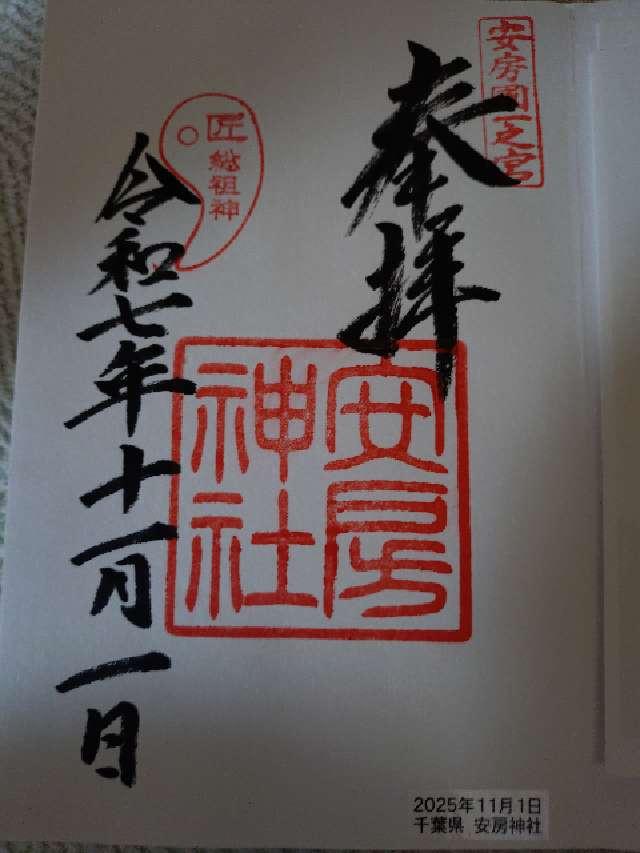 安房國一之宮
奉拝
安房
神社
匠
総祖神
令和七年十一月一日
2025年11月1日
千葉県 安房神社